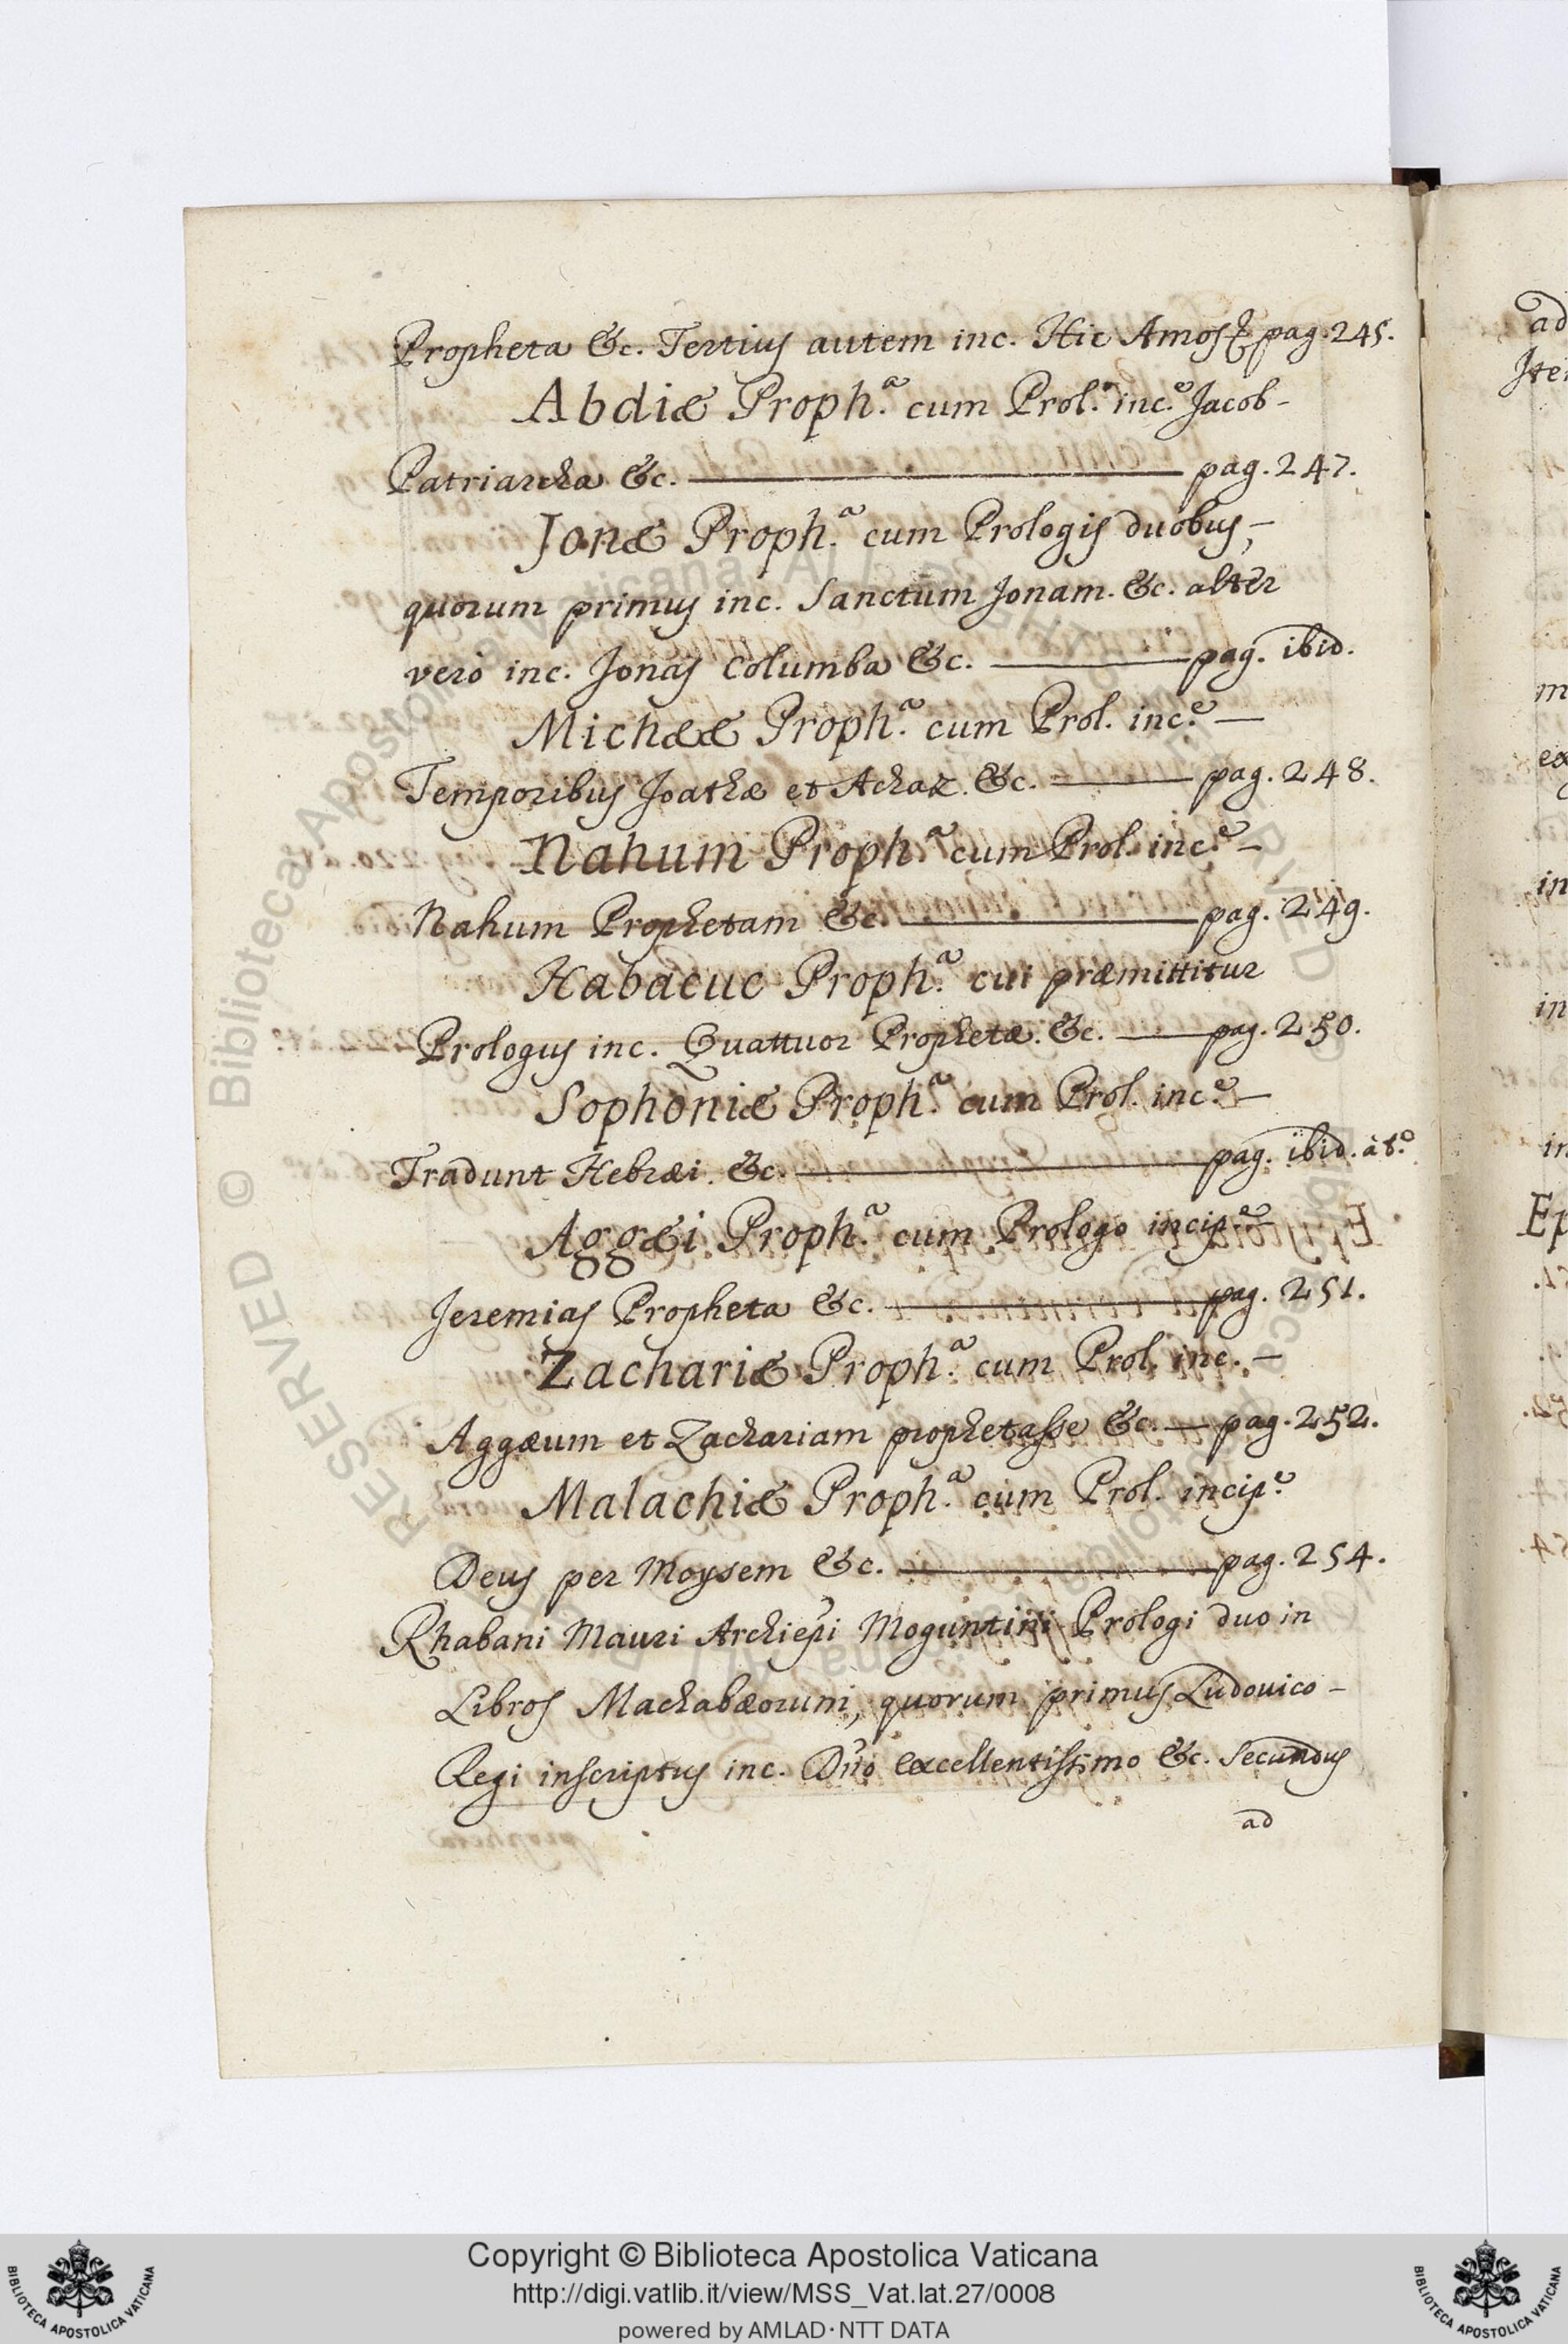 Propheta &c. Tertius autem inc. Hic Amos & pag. 245.
Abdiæ Proph.ª cum Prol.º inc.e Jacob-
Patriarcha &c. —— pag. 247.
Jonæ Proph.ª cum Prologis duobus,-
quorum primus inc. Sanctum Jonam. &c. alter
verò inc. Jonas columba &c. —— pag. ibid.
Michææ Proph.ª cum Prol. inc.e —
Temporibus Joathæ et Achaz. &c. —— pag. 248.
Nahum Proph.ª cum Prol. inc.e —
Nahum Prophetam &c. —— pag. 249.
Habacuc Proph.ª cui præmittitur
Prologus inc. Quattuor Prophetæ. &c. —— pag. 250.
Sophoniæ Proph.ª cum Prol. inc.e —
Tradunt Hebræi. &c. —— pag. ibid. à t.º
Aggæi Proph.ª cum Prologo incip.e —
Jeremias Propheta &c. —— pag. 251.
Zachariæ Proph.ª cum Prol. inc. —
Aggæum et Zachariam prophetasse &c. — pag. 252.
Malachiæ Proph.ª cum Prol. incip.e
Deus per Moysem &c. —— pag. 254.
Rhabani Mauri Archiepi Moguntini Prologi duo in
Libros Machabæorum, quorum primus Ludouico -
Regi inscriptus inc. Dño excellentissimo &c. Secundus
ad
ad
Ep
© Biblioteca Apostolica Vaticana ALL RIGHTS RESERVED
Copyright © Biblioteca Apostolica Vaticana
http://digi.vatlib.it/view/MSS_Vat.lat.27/0008
powered by AMLAD·NTT DATA
BIBLIOTECA APOSTOLICA VATICANA
BIBLIOTECA APOSTOLICA VATICANA